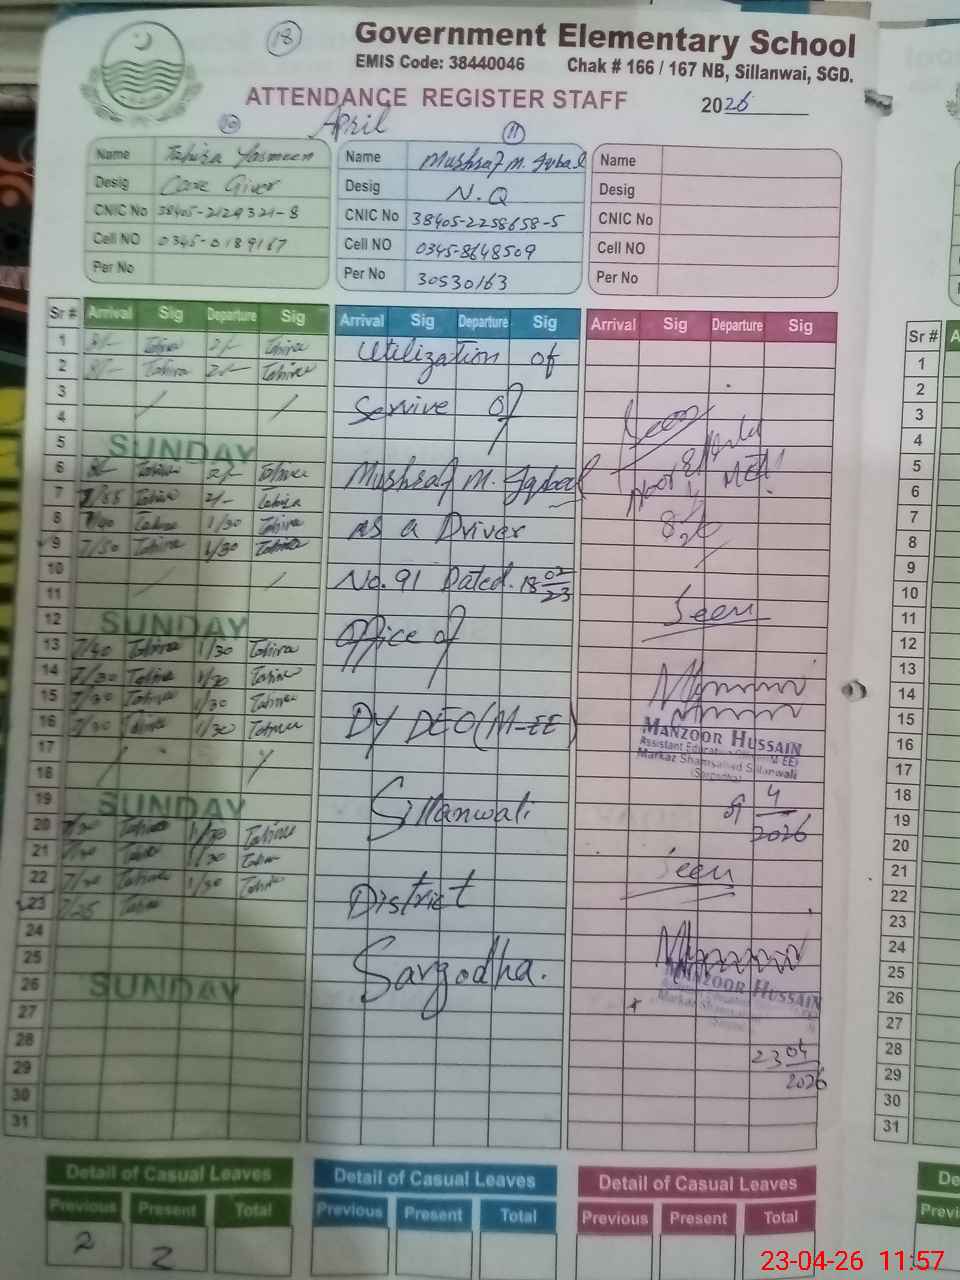 18
Government Elementary School
EMIS Code: 38440046 Chak # 166 / 167 NB, Sillanwai, SGD.
ATTENDANCE REGISTER STAFF 2026
April
10 11
Name Tahira Yasmeen
Desig Care Giver
CNIC No 38405-2129321-8
Cell NO 0345-0189167
Per No
Name Mushraf M. Iqbal
Desig N.Q
CNIC No 38405-2258658-5
Cell NO 0345-8648509
Per No 30530163
Name
Desig
CNIC No
Cell NO
Per No
Sr # Arrival Sig Departure Sig Arrival Sig Departure Sig Arrival Sig Departure Sig Sr #
1 8/- Tahira 2/- Tahira
2 8/- Tahira 2/- Tahira
3
4
5 SUNDAY
6 8/- Tahira 2/- Tahira
7 7/55 Tahira 2/- Tahira
8 7/40 Tahira 1/30 Tahira
9 7/50 Tahira 1/30 Tahira
10
11
12 SUNDAY
13 7/40 Tahira 1/30 Tahira
14 7/30 Tahira 1/30 Tahira
15 7/30 Tahira 1/30 Tahira
16 7/30 Tahira 1/30 Tahira
17
18
19 SUNDAY
20 7/30 Tahira 1/30 Tahira
21 7/30 Tahira 1/30 Tahira
22 7/30 Tahira 1/30 Tahira
23 7/25 Tahira
24
25
26 SUNDAY
27
28
29
30
31
Utilization of
Servive of
Mushraf M. Iqbal
as a Driver
No. 91 Dated. 18 02/23
office of
DY DEO (M-EE)
Sillanwali
District
Sargodha.
Seen
MANZOOR HUSSAIN
Assistant Education
Markaz Shamsabad Sillanwali
(Sargodha)
4
2026
Seen
MANZOOR HUSSAIN
23 04
2026
1
2
3
4
5
6
7
8
9
10
11
12
13
14
15
16
17
18
19
20
21
22
23
24
25
26
27
28
29
30
31
Detail of Casual Leaves Detail of Casual Leaves Detail of Casual Leaves
Previous Present Total Previous Present Total Previous Present Total
2 2
23-04-26 11:57